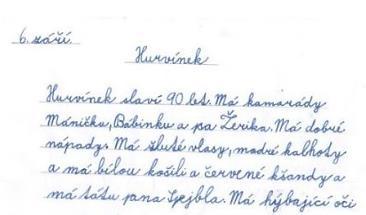 6. září.
Hurvínek
Hurvínek slaví 90 let. Má kamarády
Máničku, Bábinku a psa Žerika. Má dobré
nápady. Má žluté vlasy, modré kalhoty
a má bílou košili a červené kšandy a
má tátu pana Spejbla. Má hýbající oči